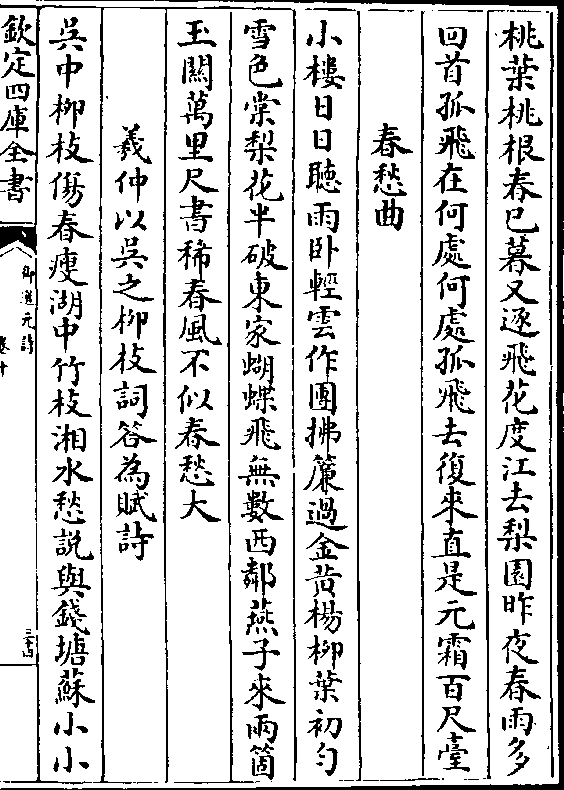 桃葉桃根春已暮又逐飛花度江去梨園昨夜春雨多
回首孤飛在何處何處孤飛去復來直是元霜百尺臺
春愁曲
小樓日日聽雨卧輕雲作團拂簾過金黄楊柳葉初勻
雪色棠梨花半破東家蝴蝶飛無數西鄰燕子來兩箇
玉關萬里尺書稀春風不似春愁大
羲仲以吳之柳枝詞答為賦詩
吳中柳枝傷春瘦湖中竹枝湘水愁説與錢塘蘇小小
欽定四庫全書
御選元詩
卷十
三十四